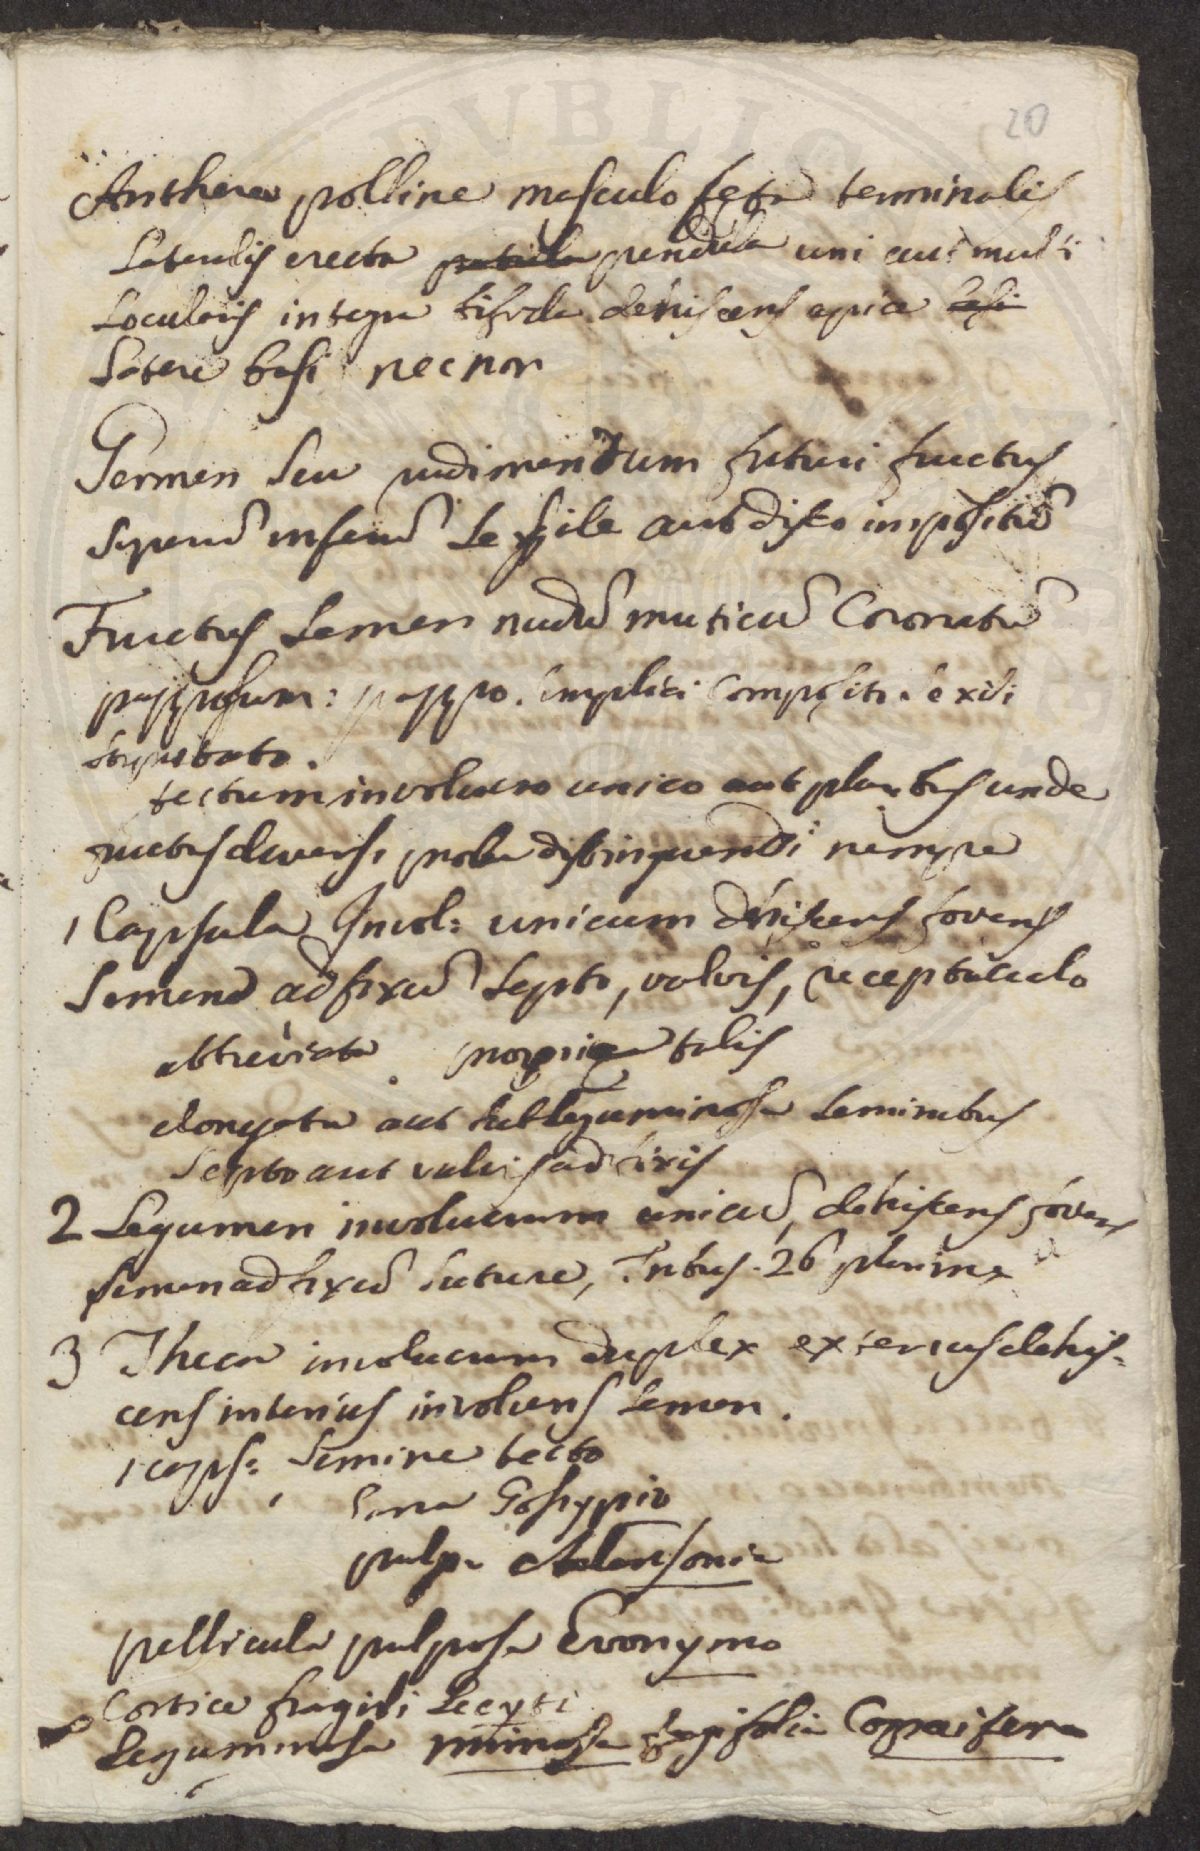 20
Anthera polline masculo fęta terminalis
Lateralis erecta patula pendula uni aut multi
Locularis integra bifida dehiscens apice basi
Latere basi necnon
Germen seu rudimentum futuri fructus
superū inferū sessile aut disko impositū
Fructus semen nudū muticū Coronatū
papposum: pappo simplici composito
stipitato.
tectum involucro unico aut pluribus unde
fructus diversi probe distinguendi nempe
1 Capsula Invol: unicum dehiscens fovens
Semen adfixū septo, valvis, receptaculo
abbreviata propria talis
elongata aut subleguminosa seminibus
Septo aut valvis adfixis
2 Legumen involucrum unicū, dehiscens fovens
semen adfixū suturæ, Intus 26 plurima
3 Theca involucrum duplex exterius dehis=
cens interius involvens semen.
1 caps: semine tecto
Lana Gossypio
pulpa Adansonia
pellicula pulposa Evonymo
Cortice fragili Lecyti
Leguminosa mimosa Copaifera
PVBLIC